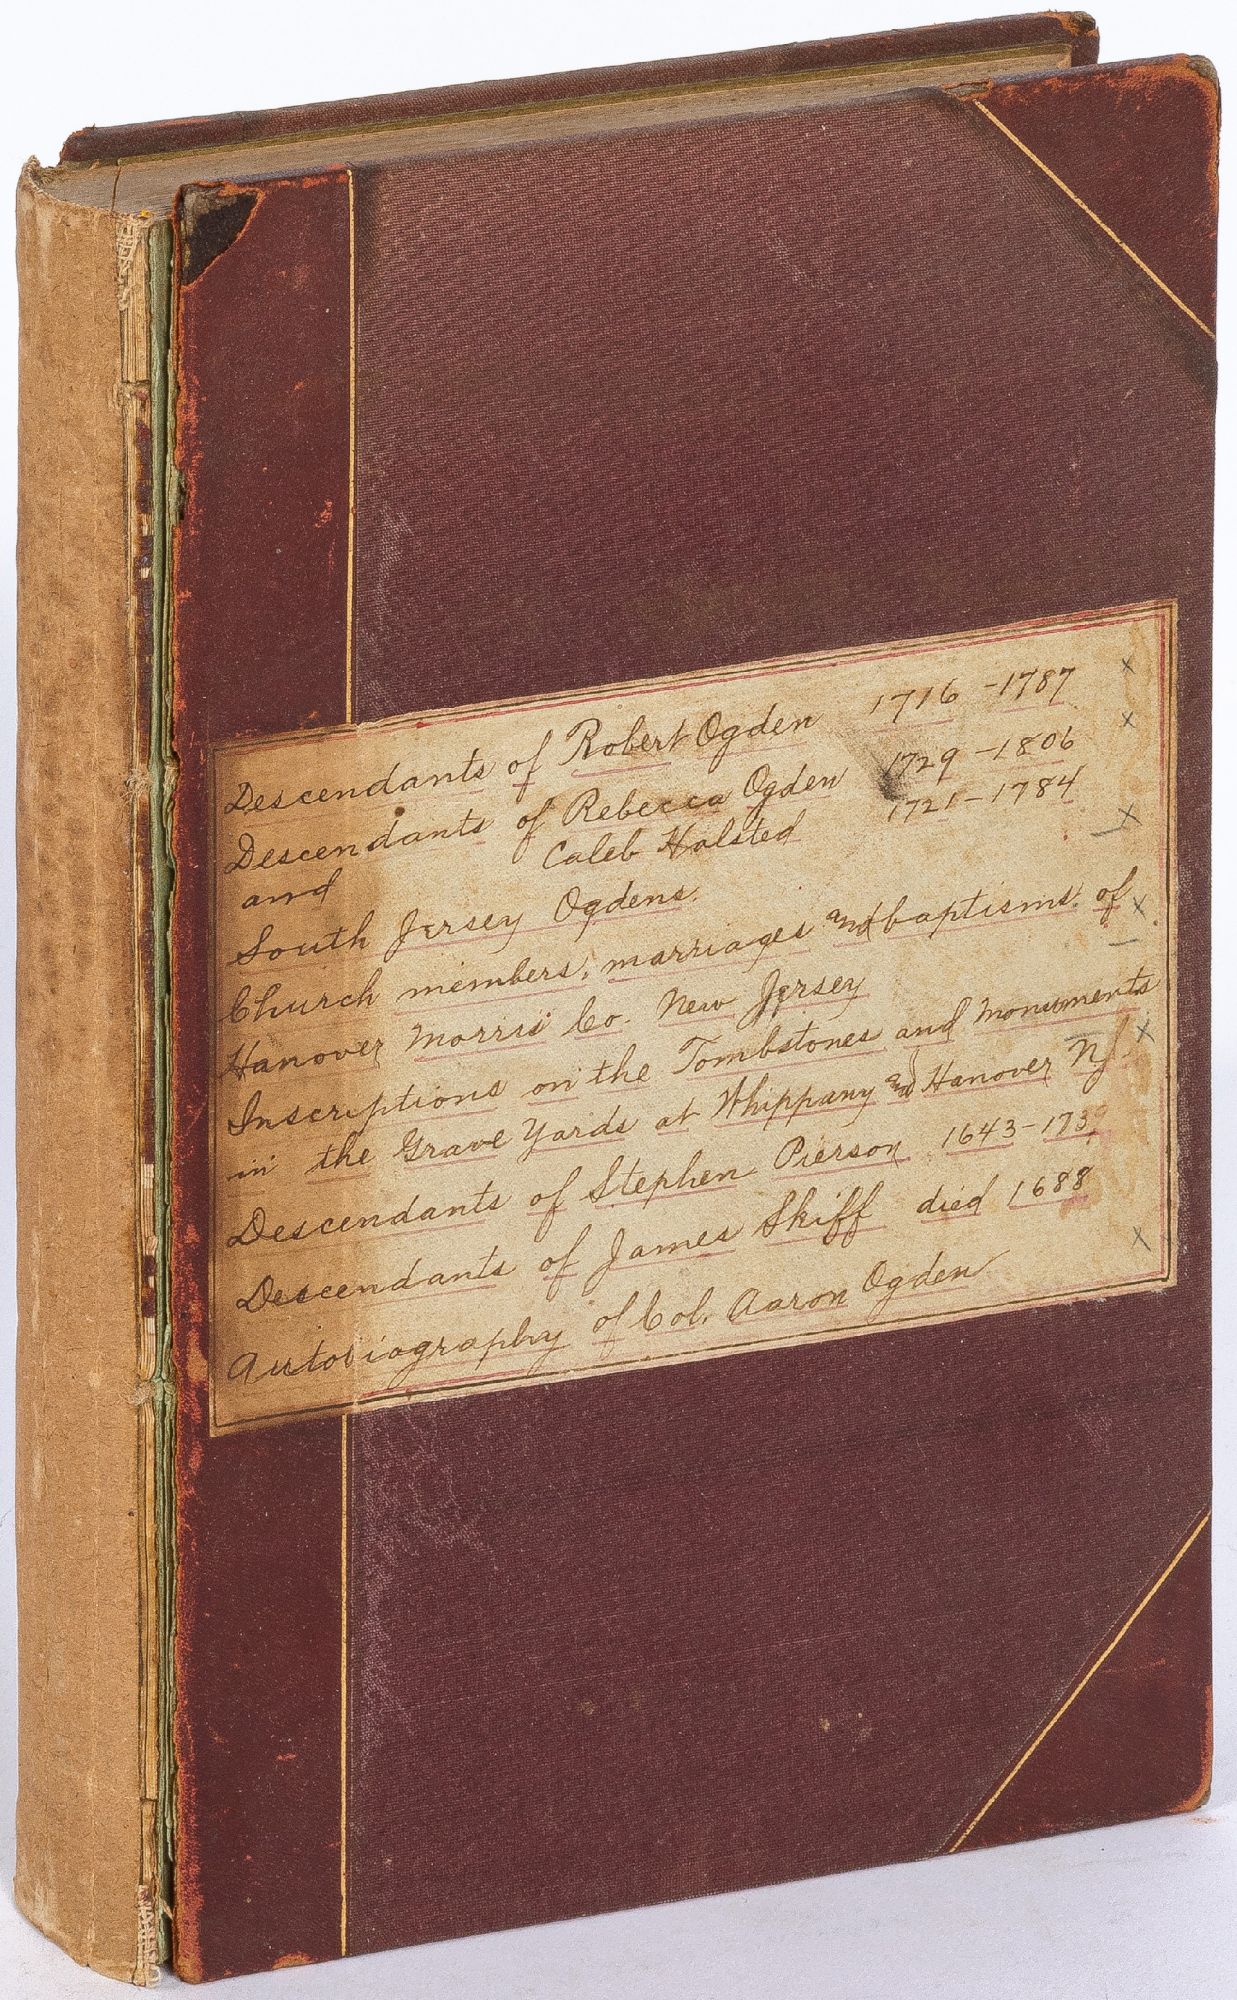 Descendants of Robert Ogden 1716-1787 x
Descendants of Rebecca Ogden 1729-1806 x
and Caleb Halsted 1721-1784
South Jersey Ogdens. x
Church members, marriages and baptisms of x
Hanover Morris Co. New Jersey
Inscriptions on the Tombstones and Monuments
in the Grave Yards at Whippany and Hanover NJ. x
Descendants of Stephen Pierson 1643-1739
Descendants of James Skiff died 1688
Autobiography of Col. Aaron Ogden x